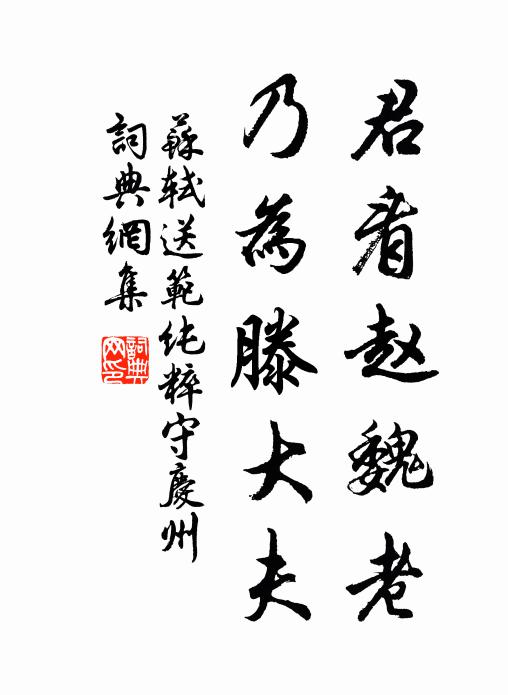 君看赵魏老
乃為滕大夫
蘇軾送範纯粹守慶州
詞典網集
詞典网印